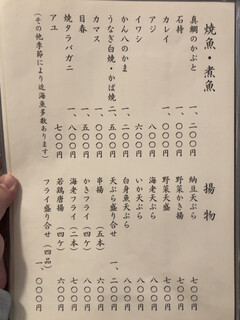 焼魚・煮魚
真鯛のかぶと 一、二〇〇円
石持 一、〇〇〇円
カレイ 一、〇〇〇円
アジ 八〇〇円
イワシ
かん八のかま 一、〇〇〇円
うなぎ白焼・かば焼 二、五〇〇円
カマス 一、〇〇〇円
目春 一、五〇〇円
焼タラバガニ 一、八〇〇円
アユ 七〇〇円
(その他季節により近海魚多数あります)
揚物
納豆天ぷら 七〇〇円
野菜かき揚 七〇〇円
野菜天盛 七〇〇円
海老天ぷら 八〇〇円
いか天ぷら 六〇〇円
白身魚天ぷら 八〇〇円
天ぷら盛り合せ
串揚(五本) 六〇〇円
かきフライ(四ケ) 八〇〇円
海老フライ(二本) 八〇〇円
若鶏唐揚(四ケ) 六〇〇円
フライ盛り合せ(四品) 一、〇〇〇円